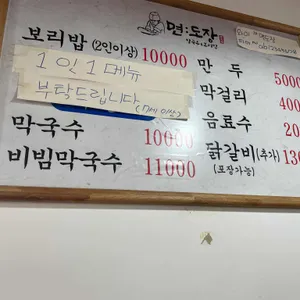 면:도장
보리밥 (2인이상) 10000
1인 1메뉴
부탁드립니다
막국수 10000
비빔막국수 11000
만두 5000
막걸리 400
음료수 20
닭갈비 (추가) 130
(포장가능)